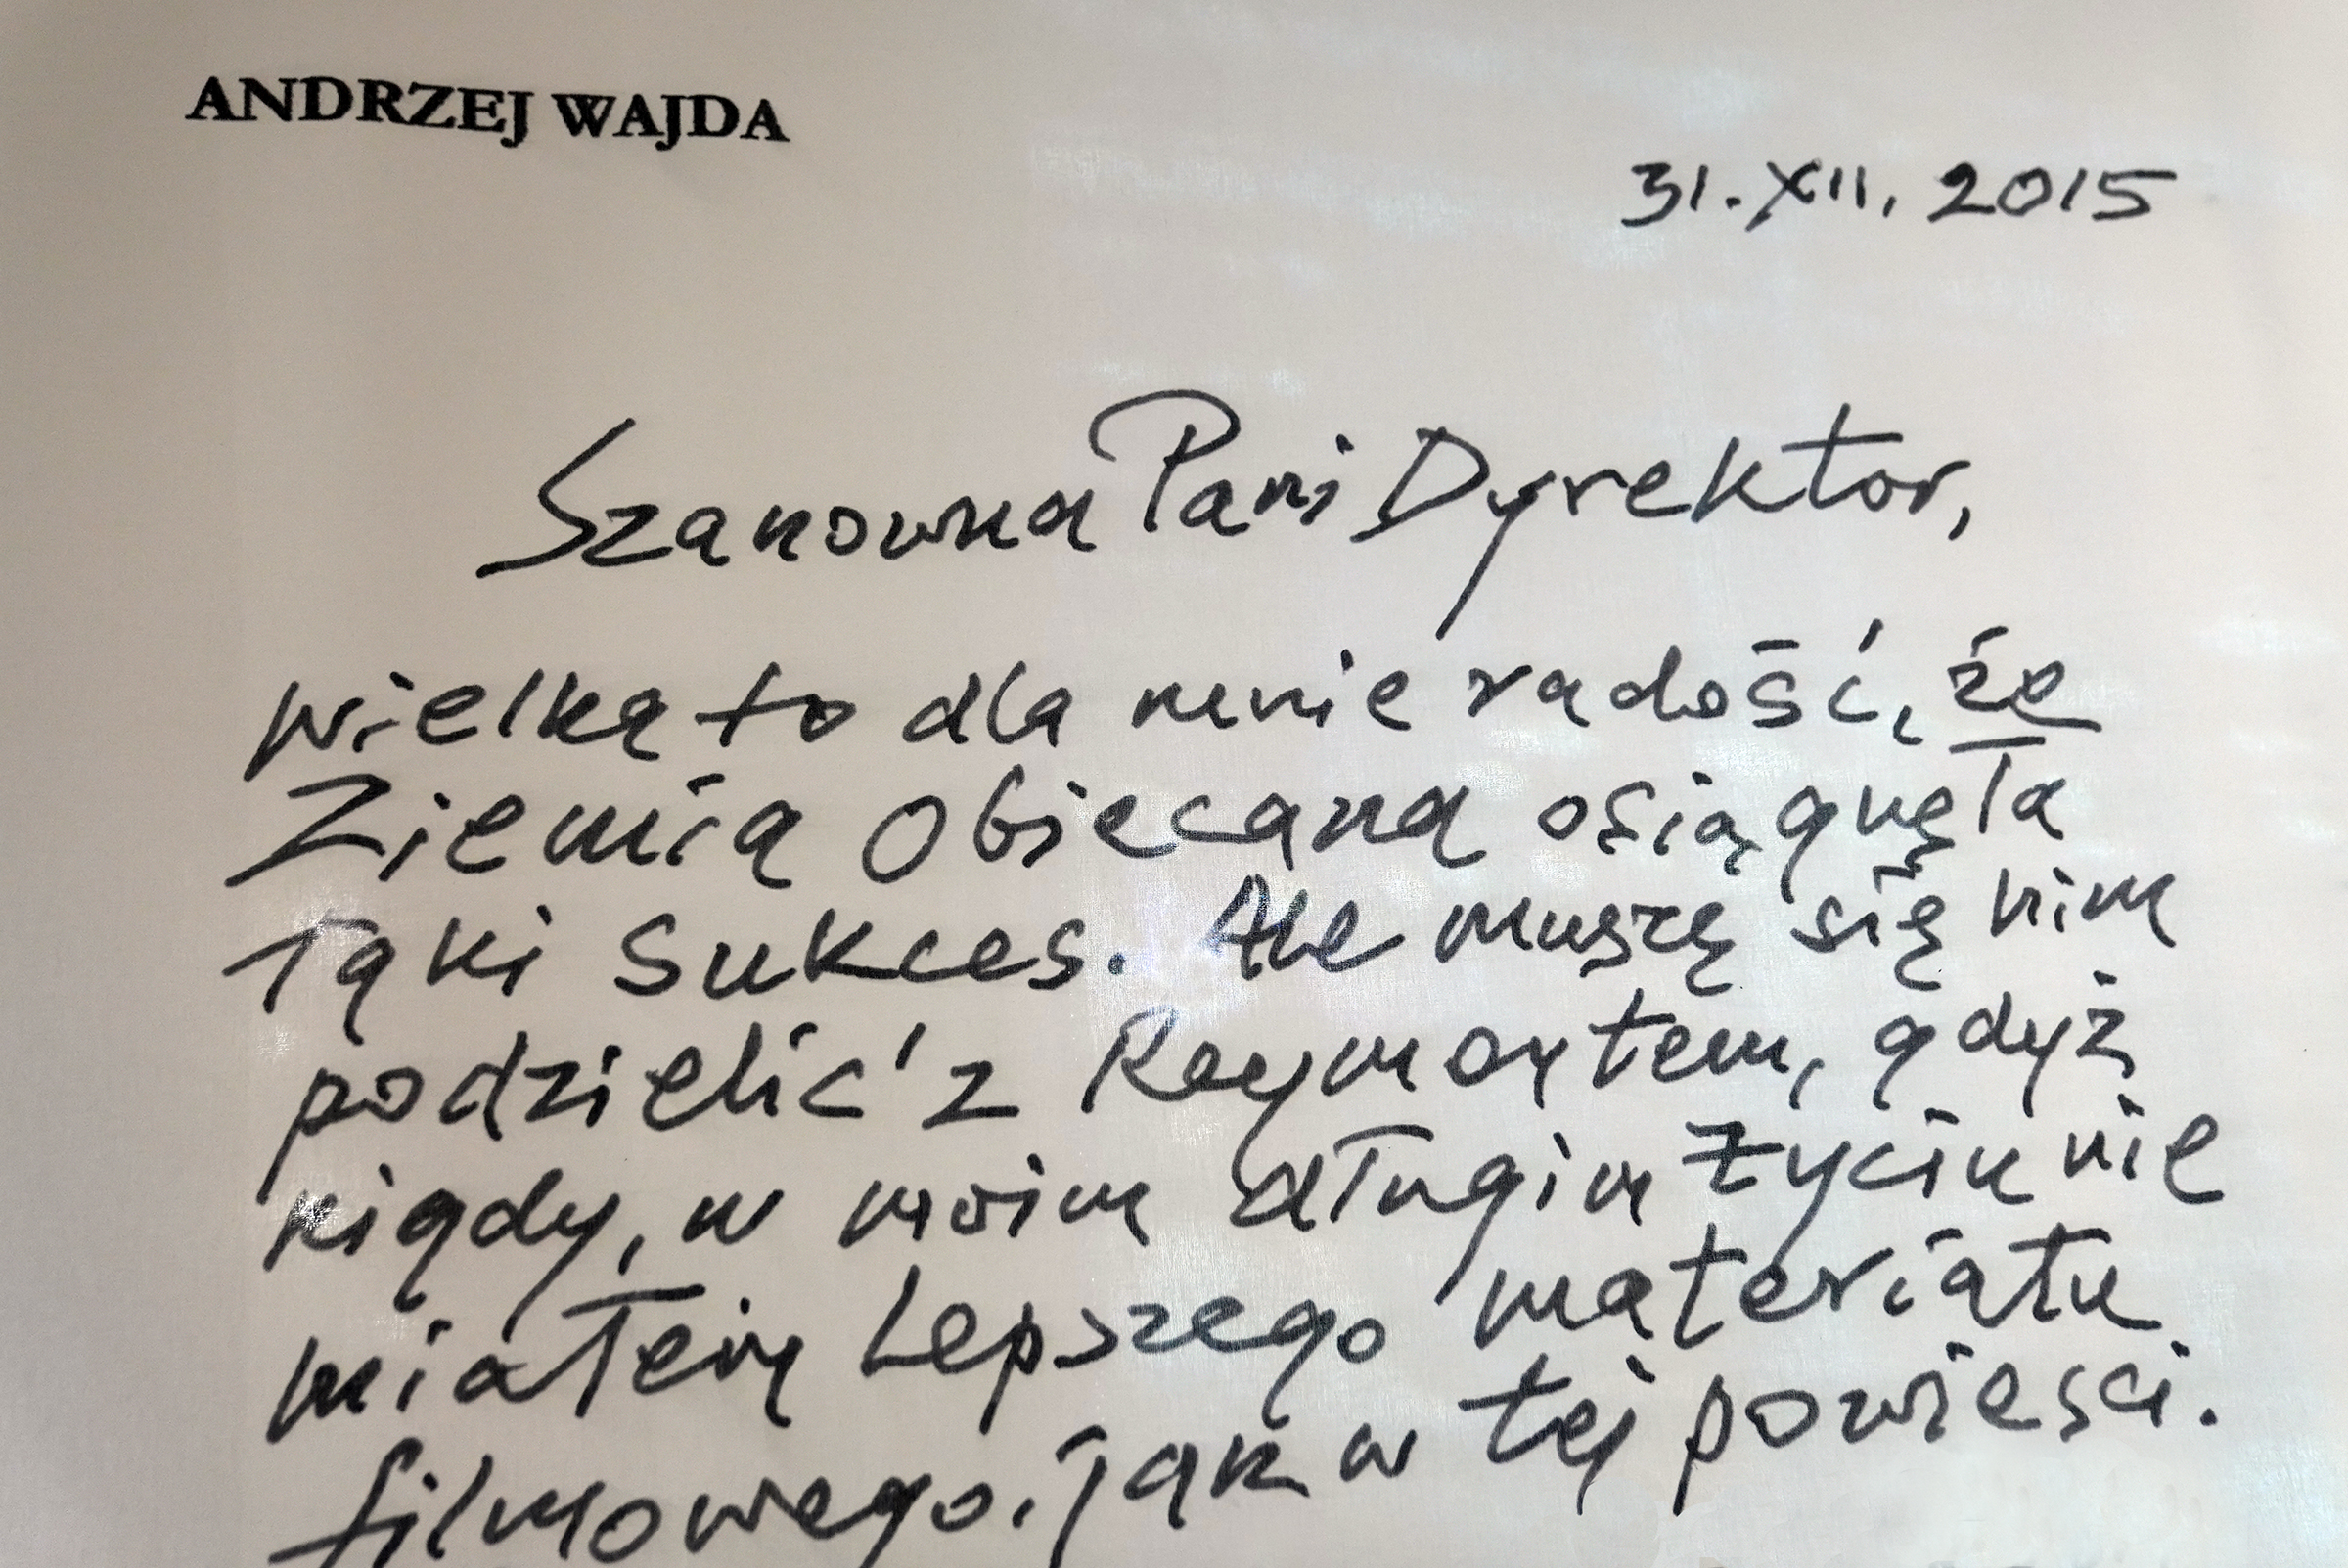 ANDRZEJ WAJDA
31.XII.2015
Szanowna Pani Dyrektor,
wielka to dla mnie radość, że
Ziemia Obiecana osiągnęła
taki sukces. Ale muszę się nim
podzielić z Reymontem, gdyż
nigdy, w moim długim życiu nie
miałem lepszego materiału
filmowego, jak w tej powieści.